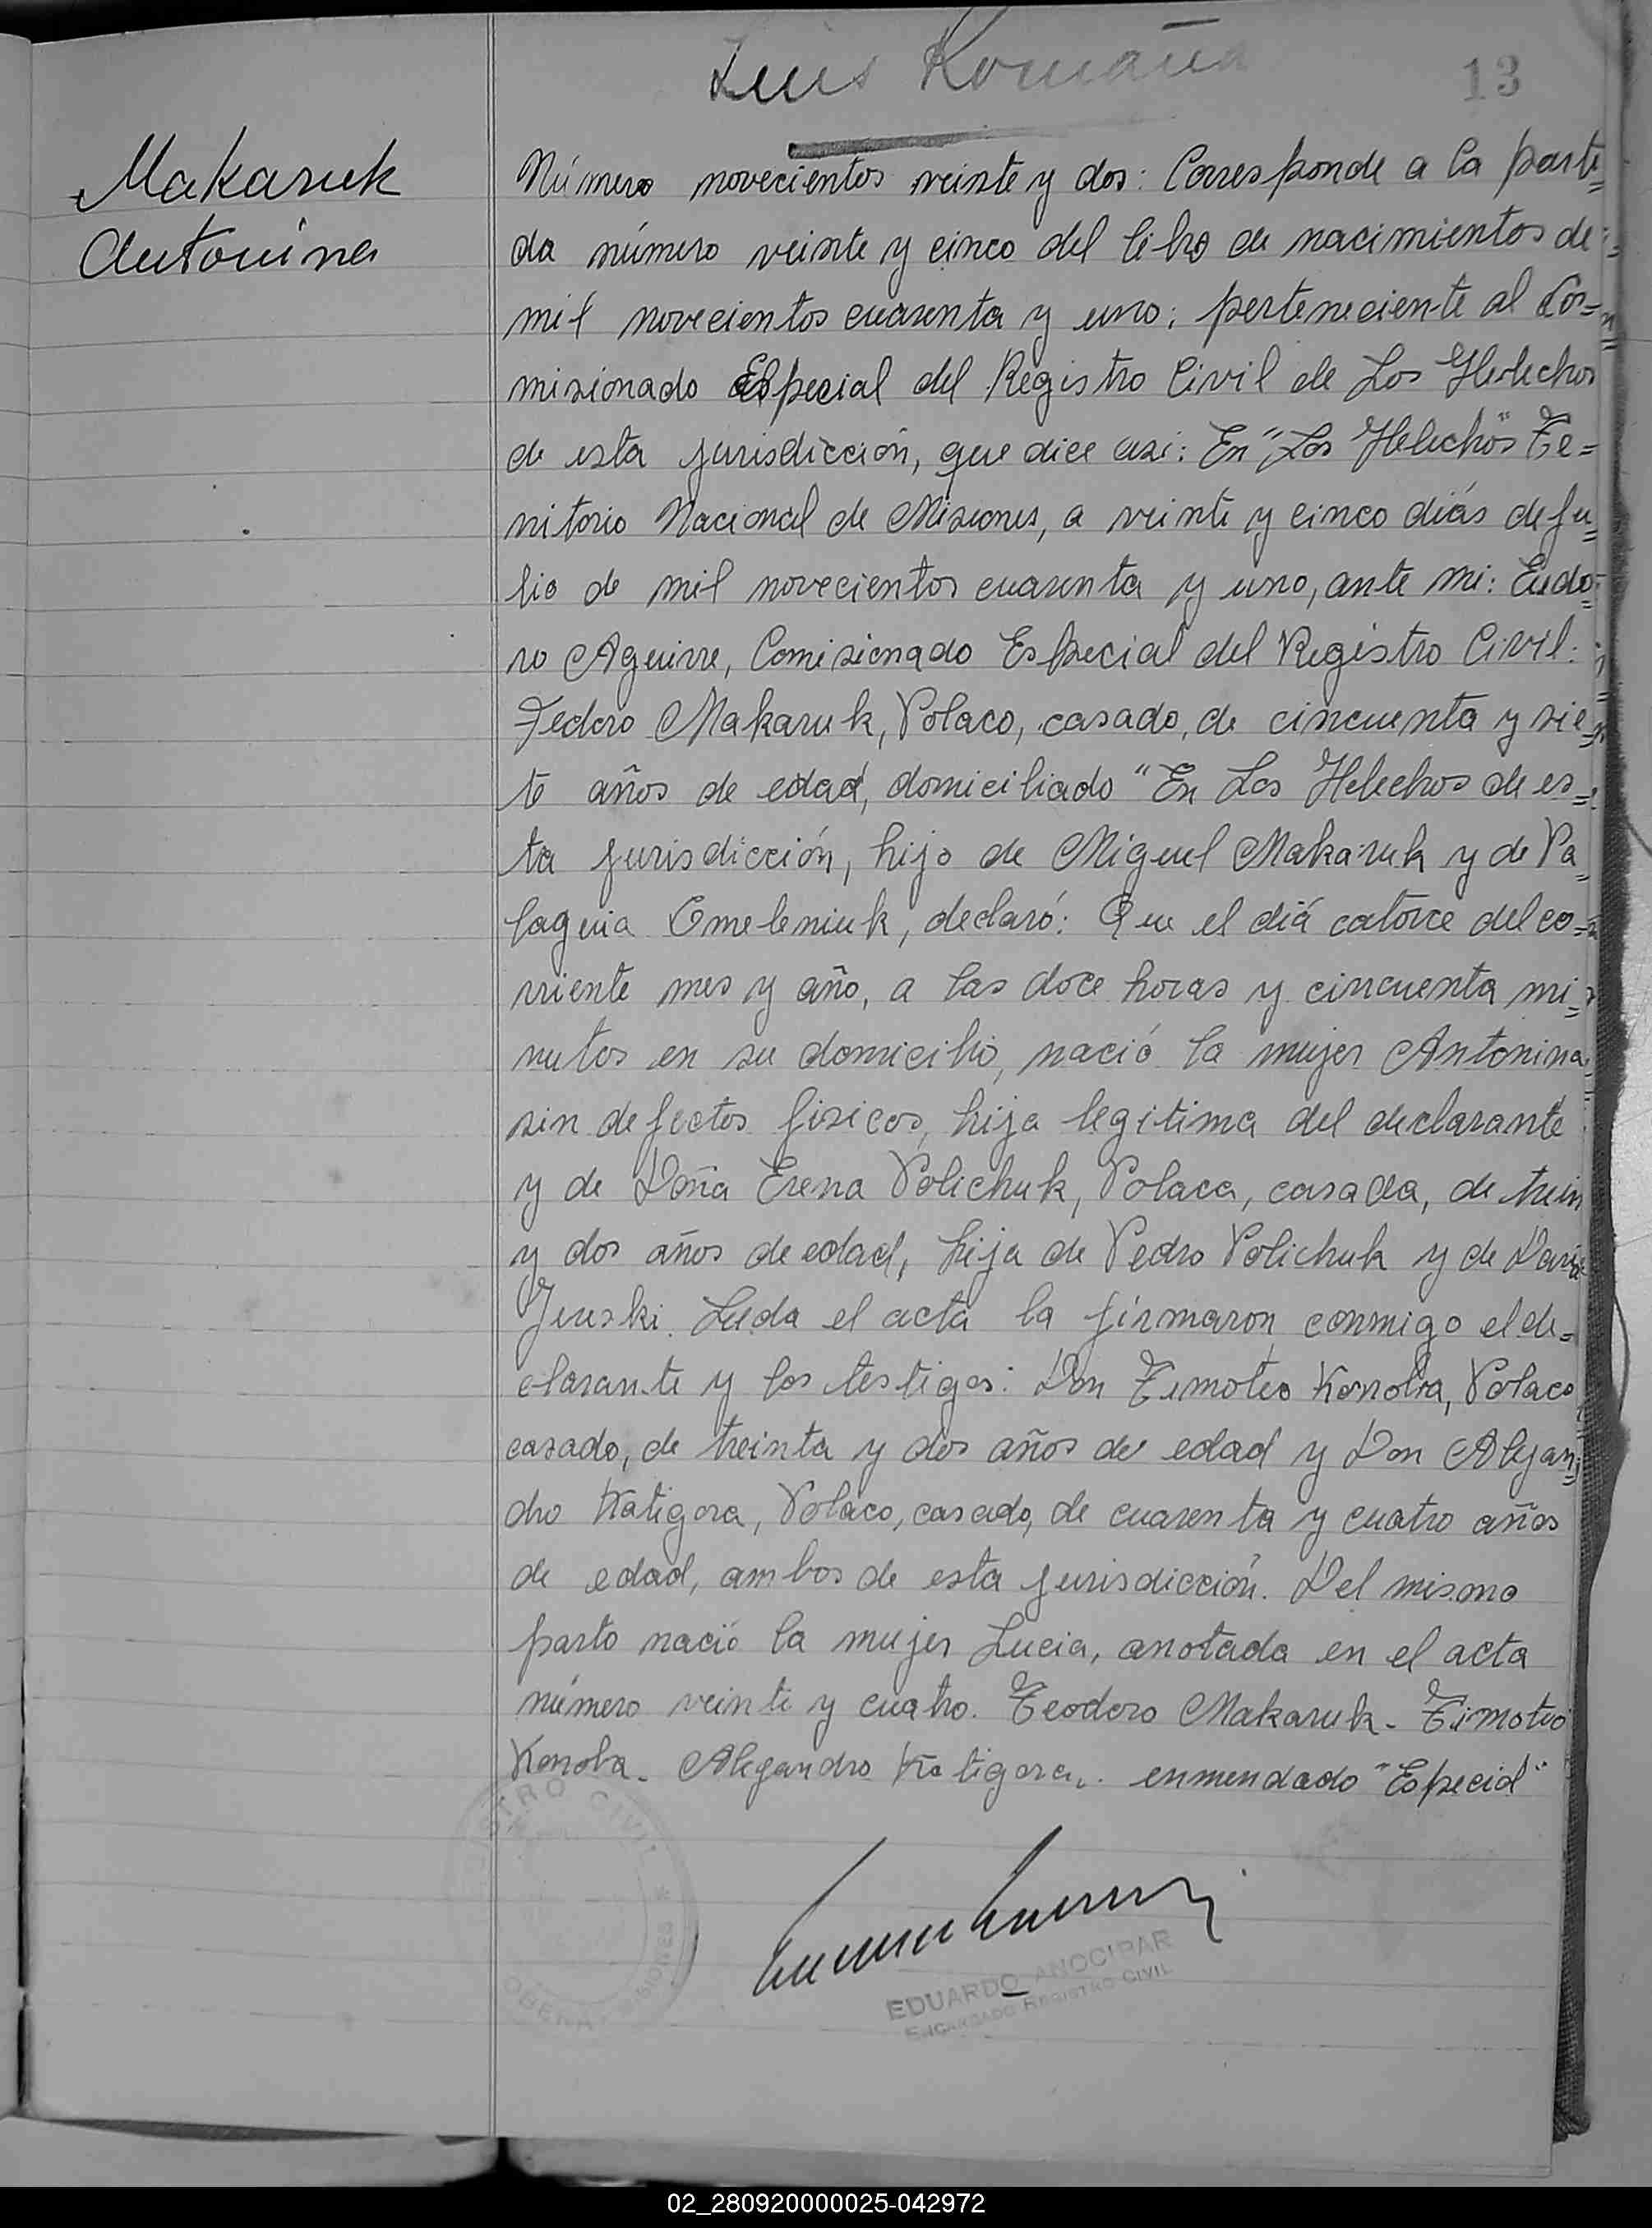 Luis Romaña
13
Makaruk
Antonina
Número novecientos veinte y dos: Corresponde a la parti=
da número veinte y cinco del libro de nacimientos de
mil novecientos cuarenta y uno; perteneciente al Co=
misionado Especial del Registro Civil de Los Helechos
de esta jurisdicción, que dice asi: En "Los Helechos" Te=
rritorio Nacional de Misiones, a veinte y cinco diás de ju=
lio de mil novecientos cuarenta y uno, ante mi: Eudo=
ro Aguirre, Comisionado Especial del Registro Civil:
Fedoro Makaruk, Polaco, casado, de cincuenta y sie=
te años de edad, domiciliado "En Los Helechos de es=
ta jurisdicción, hijo de Miguel Makaruk y de Pa=
laguia Omeleniuk, declaró: Que el diá catorce del co=
rriente mes y año, a las doce horas y cincuenta mi=
nutos en su domicilio, nació la mujer Antonina
sin defectos fisicos, hija legitima del declarante
y de Doña Erena Polichuk, Polaca, casada, de trein
y dos años de edad, hija de Pedro Polichuk y de Daria
Jeuski. Leida el acta la firmaron conmigo el de=
clarante y los testigos: Don Timoteo Konoba, Polaco
casado, de treinta y dos años de edad y Don Alejan=
dro Katigora, Polaco, casado, de cuarenta y cuatro años
de edad, ambos de esta jurisdicción. Del mismo
parto nació la mujer Lucia, anotada en el acta
número veinte y cuatro. Teodoro Makaruk. Timoteo
Konoba. Alejandro Katigora. enmendado "Especial"
REGISTRO CIVIL
OBERA MISIONES
EDUARDO ANOCIBAR
ENCARGADO REGISTRO CIVIL
02_280920000025-042972